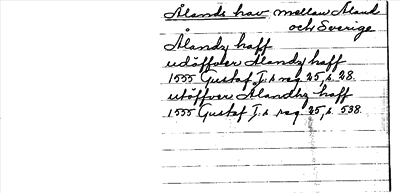 Ålands hav mellan Åland
och Sverige
Ålandz haff
udöffver Alandz haff
1555 Gustaf I:s reg 25, s 28.
utöffver Alandhz haff
1555 Gustaf I:s reg 25, s. 538.